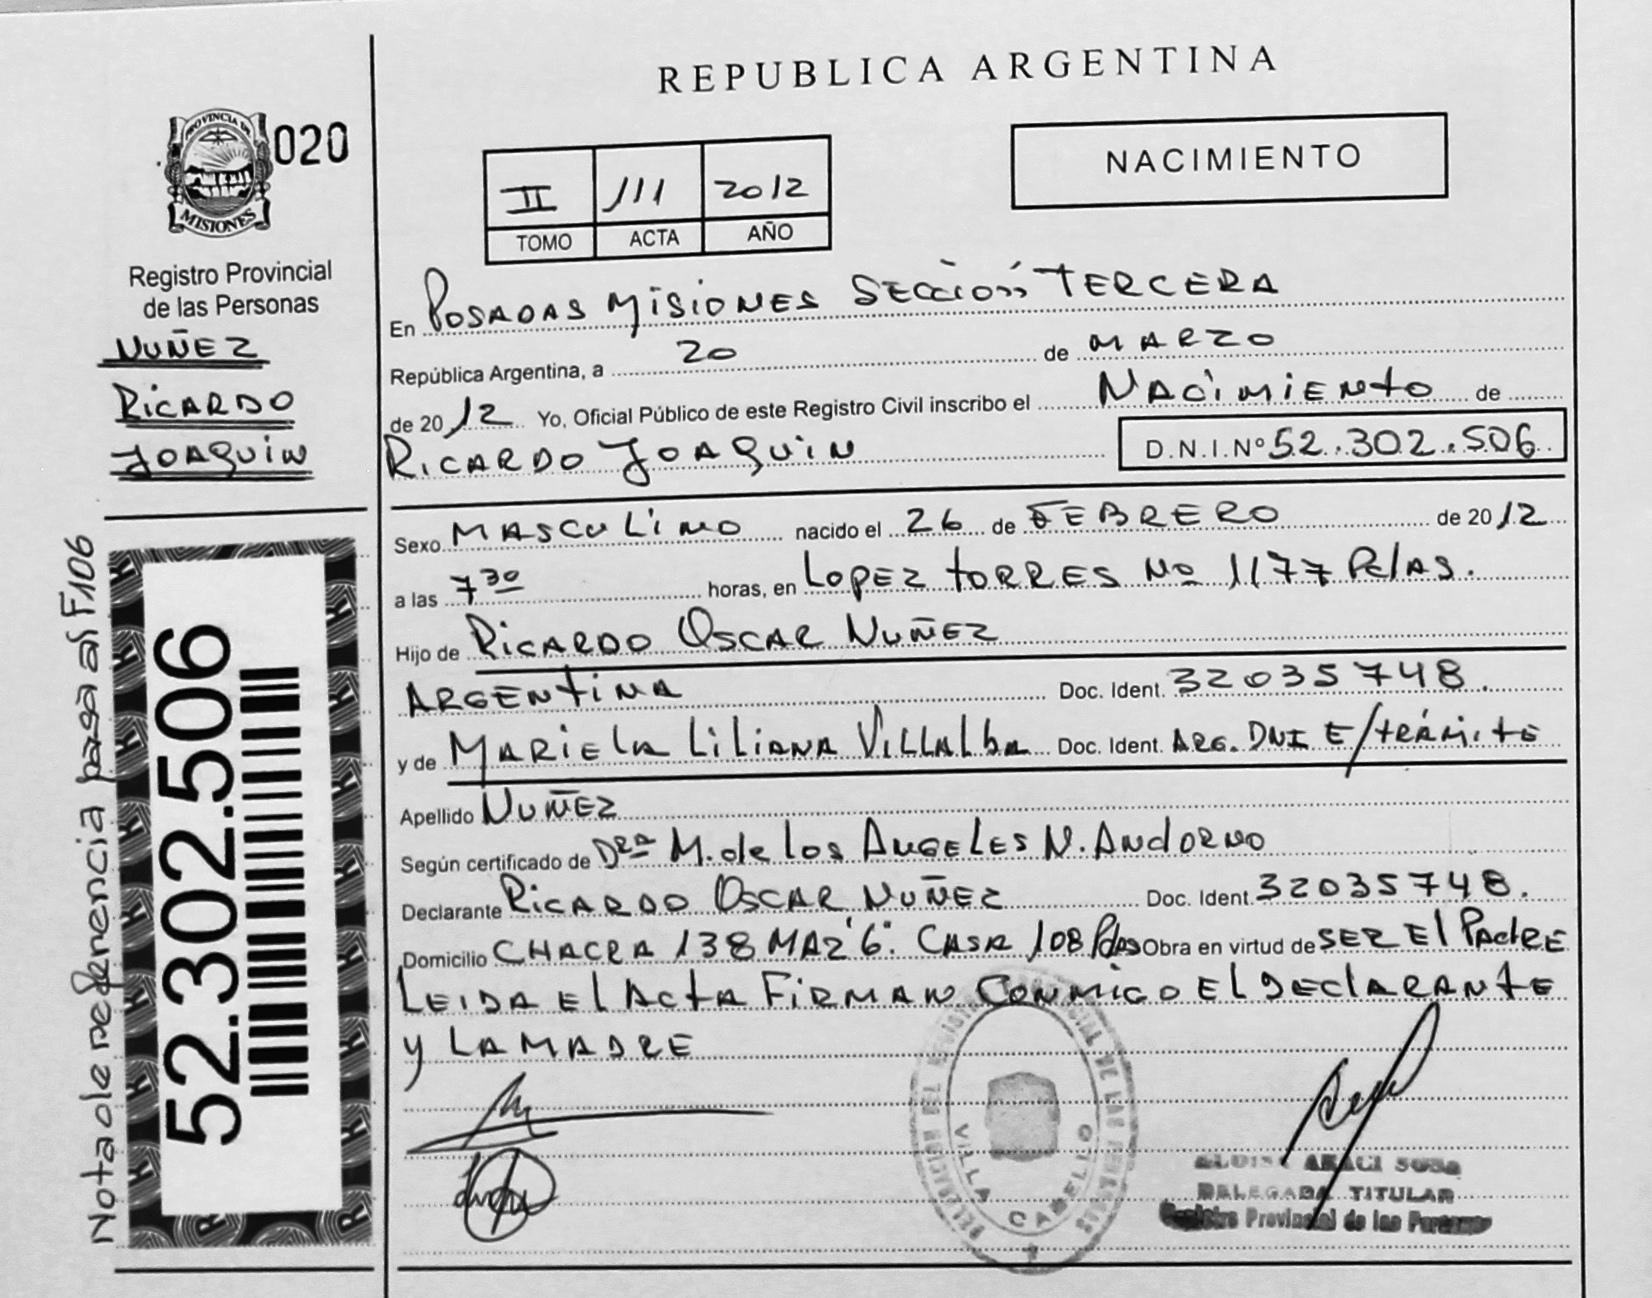 REPUBLICA ARGENTINA
PROVINCIA DE
MISIONES
020
Registro Provincial
de las Personas
NUÑEZ
RICARDO
JOAQUIN
II 111 2012
TOMO ACTA AÑO
NACIMIENTO
En POSADAS MISIONES SECCIÓN TERCERA
República Argentina, a 20 de MARZO
de 2012 Yo, Oficial Público de este Registro Civil inscribo el NACIMIENTO de
RICARDO JOAQUIN D.N.I.Nº 52.302.506
Sexo MASCULINO nacido el 26 de FEBRERO de 2012
a las 7 30 horas, en LOPEZ TORRES Nº 1177 Pdas.
Hijo de RICARDO OSCAR NUÑEZ
ARGENTINA Doc. Ident. 32035748.
y de MARIELA LILIANA VILLALBA Doc. Ident. ARG. DNI E/TRÁMITE
Apellido NUÑEZ
Según certificado de DRA M. de los ANGELES N. ANDORNO
Declarante RICARDO OSCAR NUÑEZ Doc. Ident. 32035748.
Domicilio CHACRA 138 MAZ "6". CASA 108 Pdas Obra en virtud de SER El PADRE
LEIDA El ACTA FIRMAN CONMIGO El DECLARANTE
y LA MADRE
Nota de referencia pasa al F106
52.302.506
DELEGACION DEL REGISTRO PROVINCIAL DE LAS PERSONAS
VILLA CABELLO
ARACI SOSA
DELEGADA TITULAR
Registro Provincial de las Personas